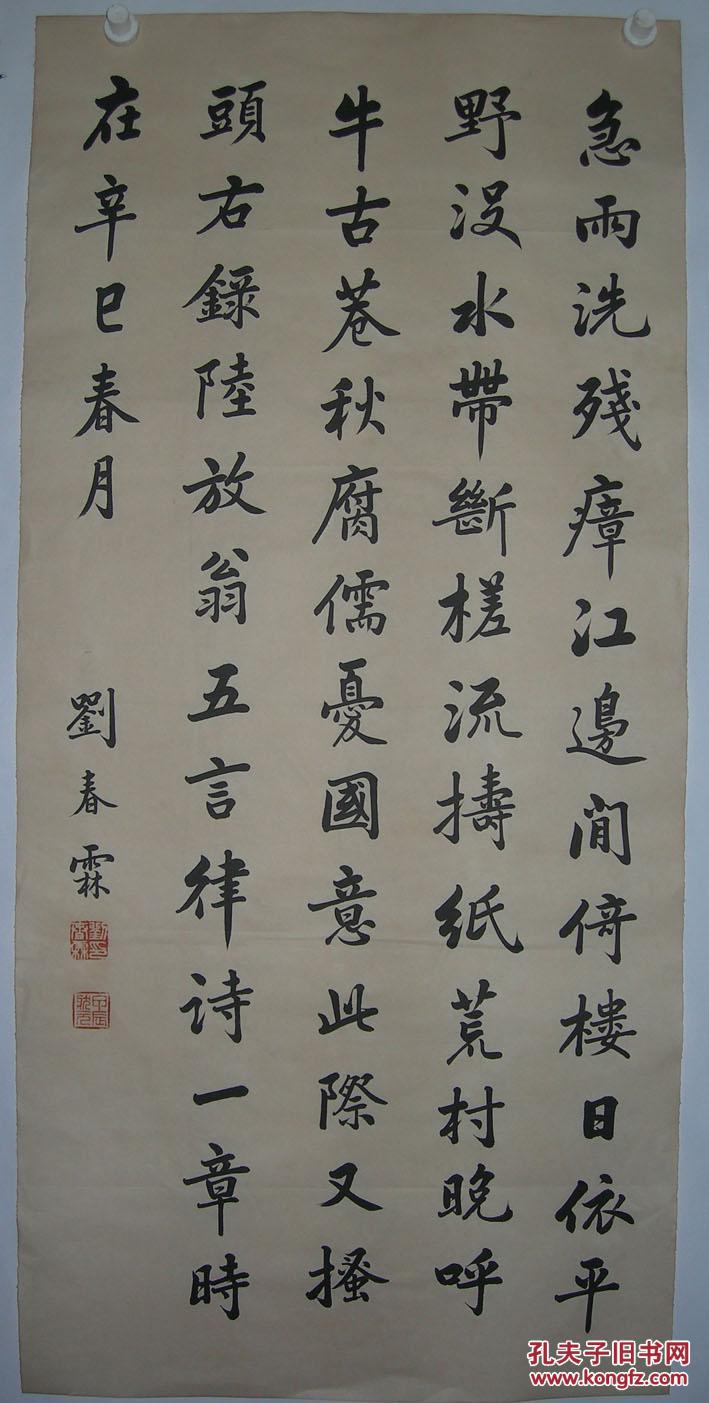 急雨洗殘瘴江邊閒倚樓日依平
野沒水帶斷槎流擣紙荒村晚呼
牛古巷秋腐儒憂國意此際又搔
頭右錄陸放翁五言律诗一章時
在辛巳春月
劉春霖
孔夫子旧书网
www.kongfz.com